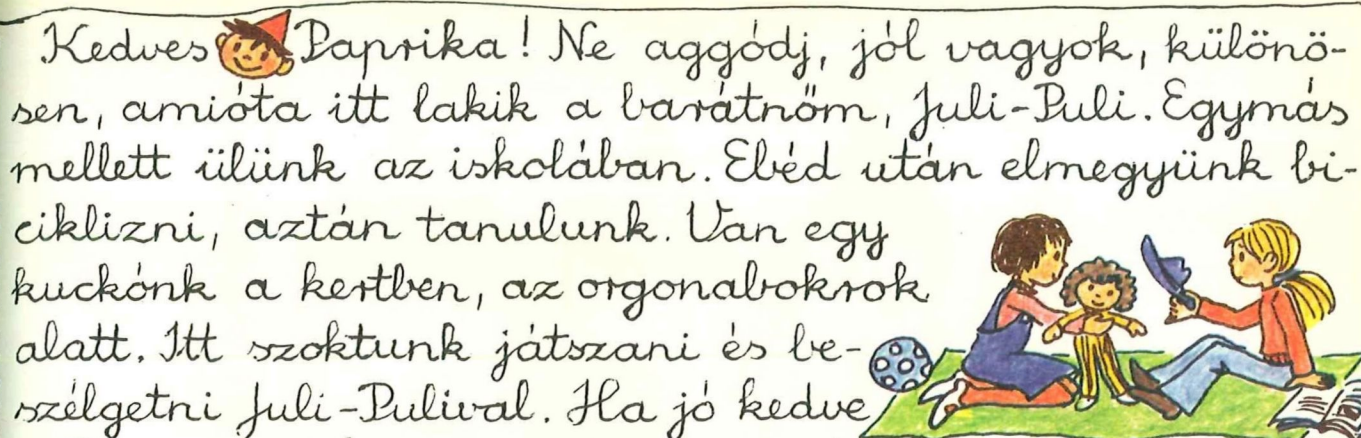 Kedves Paprika! Ne aggódj, jól vagyok, különö-
sen, amióta itt lakik a barátnőm, Juli-Puli. Egymás
mellett ülünk az iskolában. Ebéd után elmegyünk bi-
ciklizni, aztán tanulunk. Van egy
kuckónk a kertben, az orgonabokrok
alatt. Itt szoktunk játszani és be-
szélgetni Juli-Pulival. Ha jó kedve